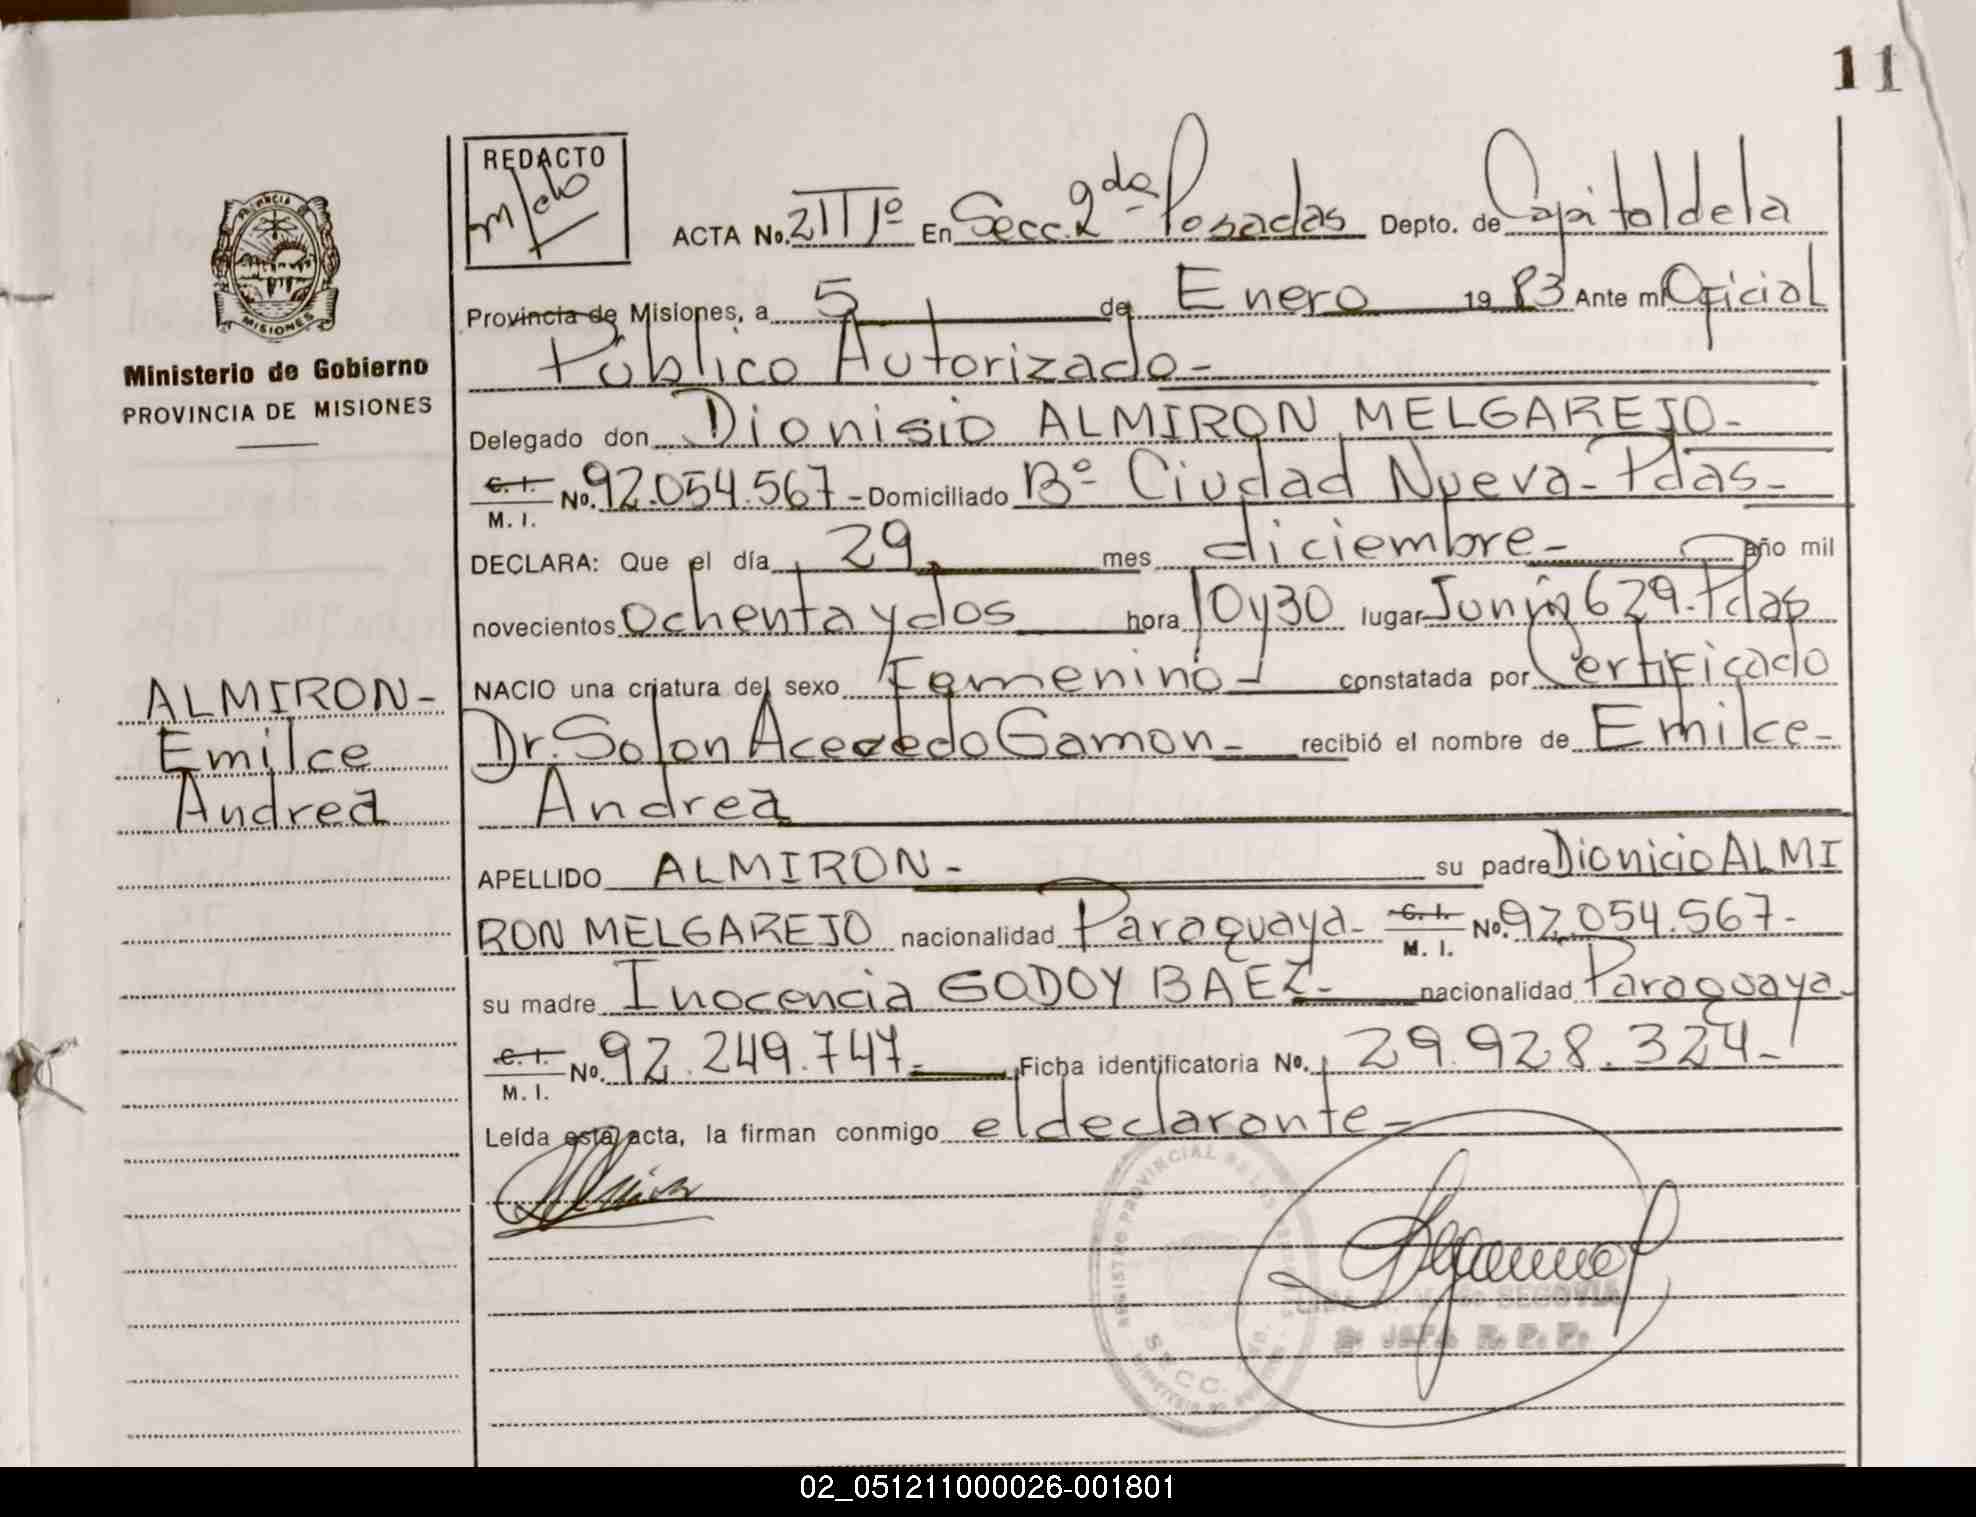 11
REDACTO
PROVINCIA DE
MISIONES
Ministerio de Gobierno
PROVINCIA DE MISIONES
ACTA No. 21 Tº Iº En Secc. 2da Posadas Depto. de Capital de la
Provincia de Misiones, a 5 de Enero 1983 Ante mi Oficial
Público Autorizado-
Delegado don Dionisio ALMIRON MELGAREJO-
C. I. M. I. No. 92.054.567- Domiciliado Bº Ciudad Nueva- Pdas-
DECLARA: Que el día 29 mes diciembre- año mil
novecientos ochenta y dos hora 10 y 30 lugar Junín 629. Pdas
NACIO una criatura del sexo Femenino- constatada por Certificado
Dr. Solon Acevedo Gamon- recibió el nombre de Emilce-
Andrea
ALMIRON-
Emilce
Andrea
APELLIDO ALMIRON- su padre Dionicio ALMI
RON MELGAREJO nacionalidad Paraguaya- C. I. M. I. No. 92.054.567-
su madre Inocencia GODOY BAEZ- nacionalidad Paraguaya-
C. I. M. I. No. 92.249.747- Ficha identificatoria No. 29.928.324-
Leída esta acta, la firman conmigo el declarante-
REGISTRO PROVINCIAL DE LAS
SEGOVIA
JEFA R. P. P.
02_051211000026-001801